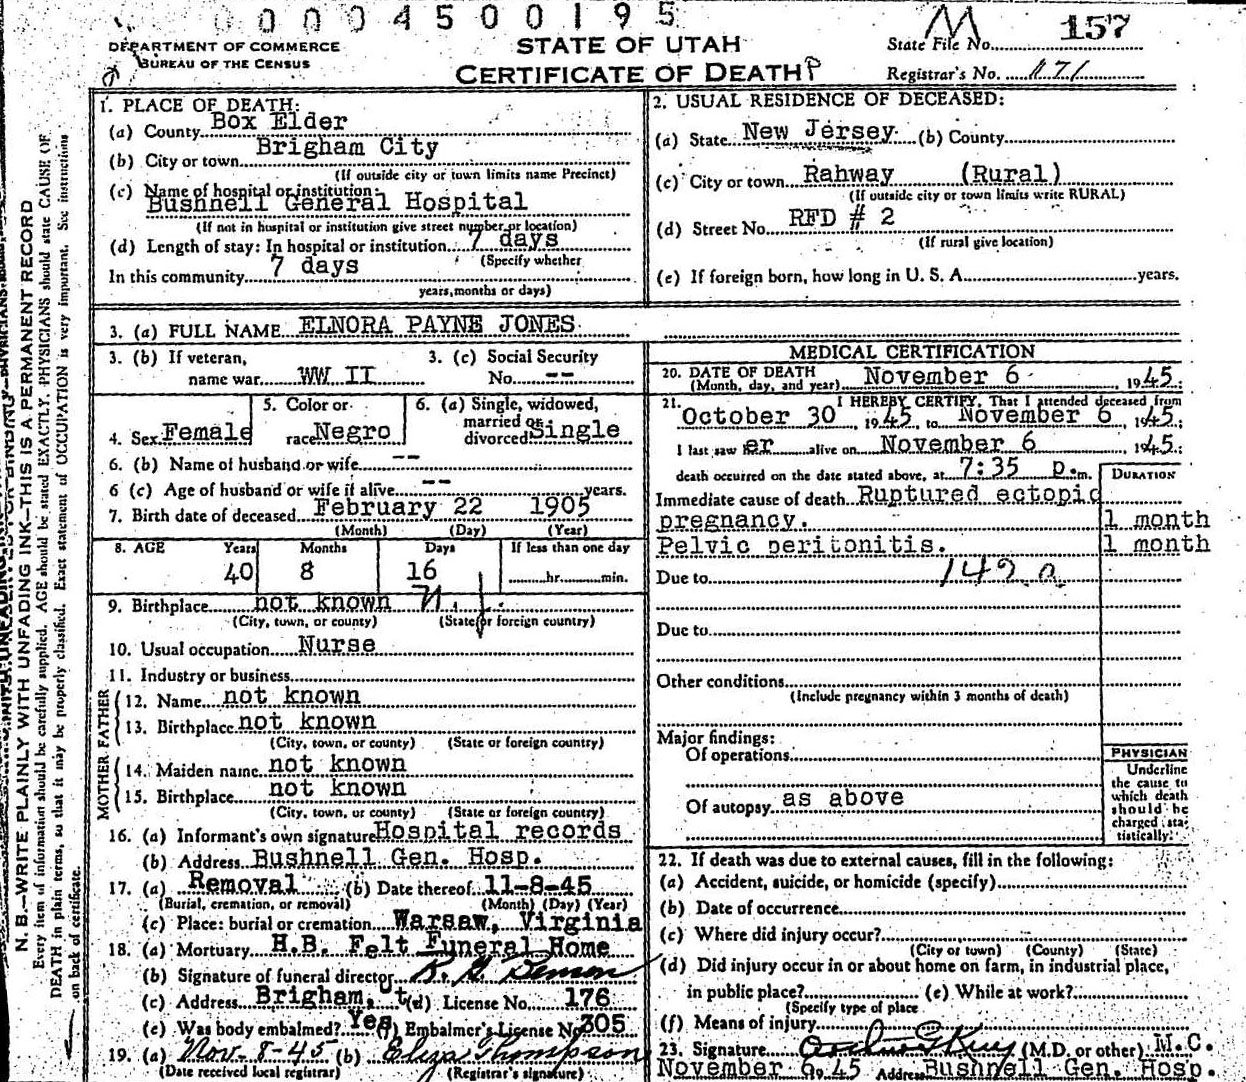 00004500195
DEPARTMENT OF COMMERCE
BUREAU OF THE CENSUS
STATE OF UTAH
CERTIFICATE OF DEATH
M
State File No. 157
Registrar's No. 171
N. B.—WRITE PLAINLY WITH UNFADING INK—THIS IS A PERMANENT RECORD
Every item of information should be carefully supplied. AGE should be stated EXACTLY. PHYSICIANS should state CAUSE OF
DEATH in plain terms, so that it may be properly classified. Exact statement of OCCUPATION is very important. See instructions
on back of certificate.
1. PLACE OF DEATH:
(a) County Box Elder
(b) City or town Brigham City
(If outside city or town limits name Precinct)
(c) Name of hospital or institution:
Bushnell General Hospital
(If not in hospital or institution give street number or location)
(d) Length of stay: In hospital or institution 7 days
(Specify whether
In this community 7 days
years, months or days)
2. USUAL RESIDENCE OF DECEASED:
(a) State New Jersey (b) County
(c) City or town Rahway (Rural)
(If outside city or town limits write RURAL)
(d) Street No. RFD # 2
(If rural give location)
(e) If foreign born, how long in U. S. A. years.
3. (a) FULL NAME ELNORA PAYNE JONES
3. (b) If veteran, name war WW II
3. (c) Social Security No. --
4. Sex Female
5. Color or race Negro
6. (a) Single, widowed, married or divorced Single
6. (b) Name of husband or wife --
6 (c) Age of husband or wife if alive -- years.
7. Birth date of deceased February 22 1905
(Month) (Day) (Year)
8. AGE Years Months Days If less than one day
40 8 16 hr. min.
9. Birthplace not known
(City, town, or county) (State or foreign country)
10. Usual occupation Nurse
11. Industry or business
FATHER
12. Name not known
13. Birthplace not known
(City, town, or county) (State or foreign country)
MOTHER
14. Maiden name not known
15. Birthplace not known
(City, town, or county) (State or foreign country)
16. (a) Informant's own signature Hospital records
(b) Address Bushnell Gen. Hosp.
17. (a) Removal (b) Date thereof 11-8-45
(Burial, cremation, or removal) (Month) (Day) (Year)
(c) Place: burial or cremation Warsaw, Virginia
18. (a) Mortuary H.B. Felt Funeral Home
(b) Signature of funeral director
(c) Address Brigham, Ut (d) License No. 176
(e) Was body embalmed? Yes (f) Embalmer's License No 305
19. (a) Nov-8-45 (b) Eliza Thompson
(Date received local registrar) (Registrar's signature)
MEDICAL CERTIFICATION
20. DATE OF DEATH
(Month, day, and year) November 6, 1945
21. I HEREBY CERTIFY, That I attended deceased from
October 30, 1945, to November 6, 1945.
I last saw er alive on November 6 1945;
death occurred on the date stated above, at 7:35 p.m.
DURATION
Immediate cause of death Ruptured ectopic
pregnancy. 1 month
Pelvic peritonitis. 1 month
Due to 142 a
Due to
Other conditions
(Include pregnancy within 3 months of death)
Major findings:
Of operations
Of autopsy as above
PHYSICIAN
Underline
the cause to
which death
should be
charged sta-
tistically.
22. If death was due to external causes, fill in the following:
(a) Accident, suicide, or homicide (specify)
(b) Date of occurrence
(c) Where did injury occur?
(City or town) (County) (State)
(d) Did injury occur in or about home on farm, in industrial place,
in public place? (e) While at work?
(Specify type of place
(f) Means of injury
23. Signature (M.D. or other) M.C.
November 6 1945 Address Bushnell Gen. Hosp.